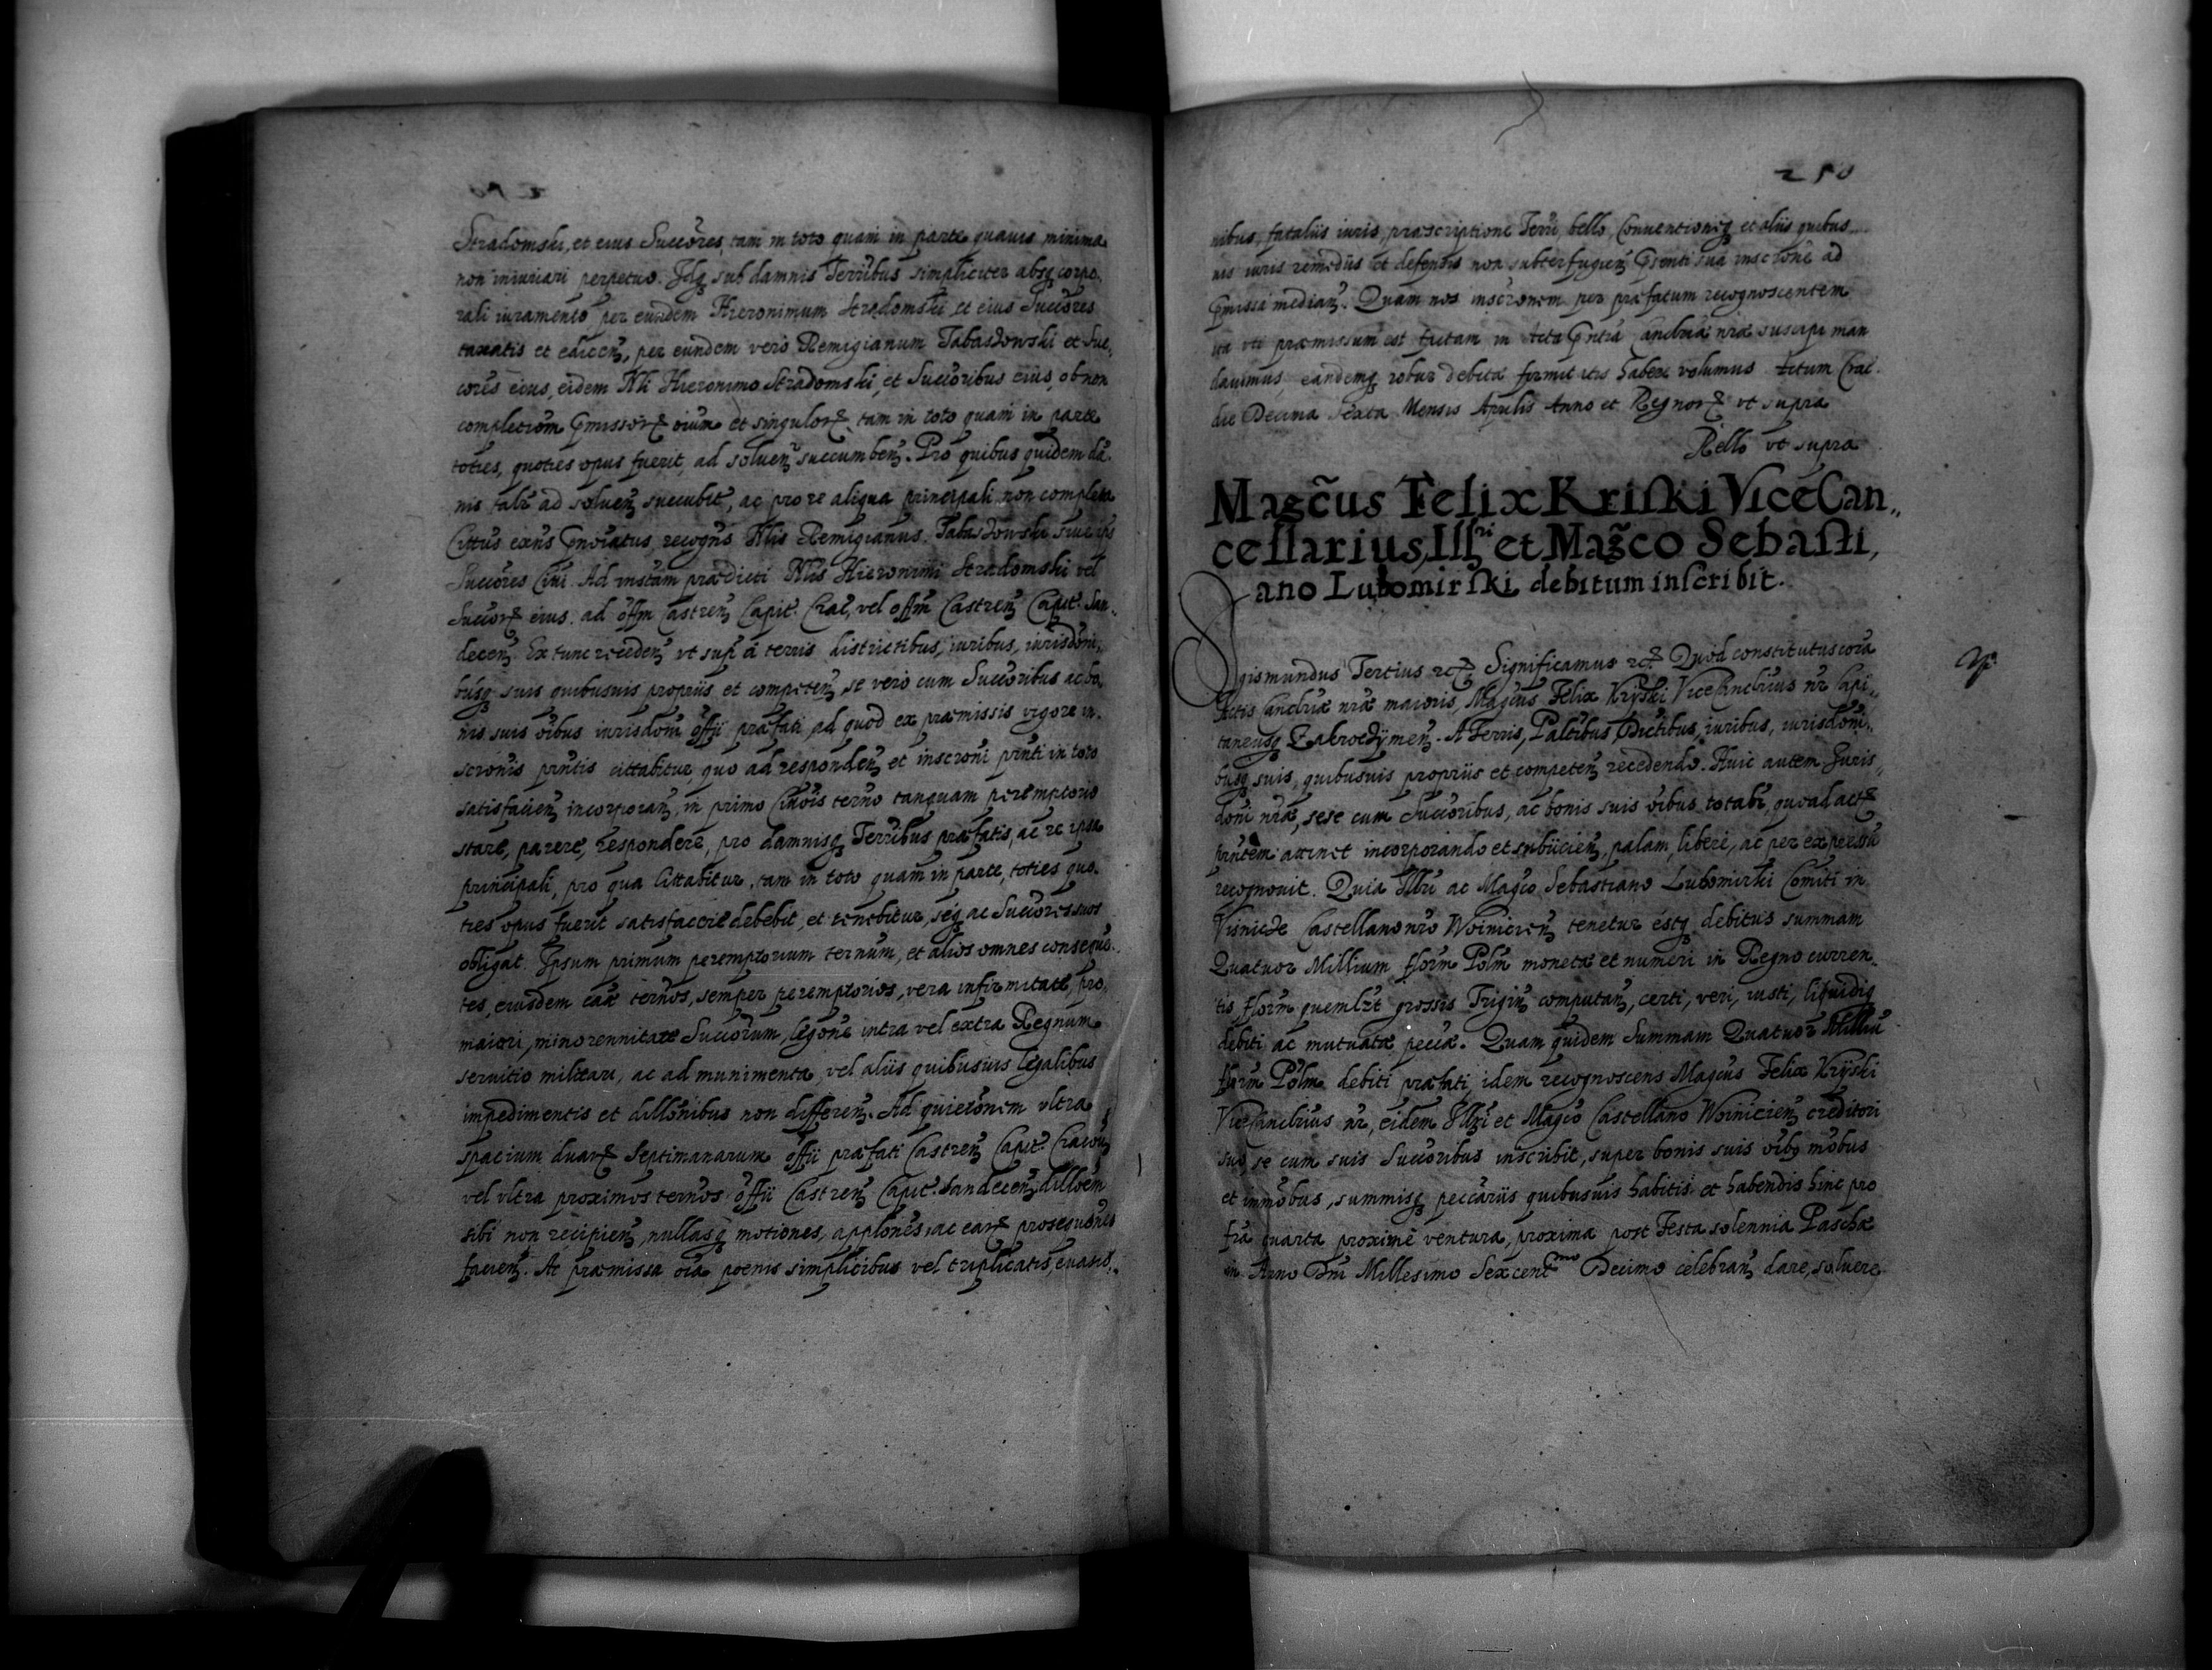 Stradomski, et eius Succōres, tam in toto quam in parte quauis minima
non iniuriari perpetuo. Idq₃ sub damnis Terrībus simpliciter absq₃ corpo,
rali iuramento per eundem Hieronimum Stradomski et eius Succōres
taxatis et edicen̄, per eundem vero Remigianum Tabaszowski et Suc,
cores eius, eidem Nli Hieronimo Stradomski, et Succōribus eius, ob non
completiom p̄missorꝝ oium et singulorꝝ tam in toto quam in parte
toties, quoties opus fuerit, ad soluen̄ succumben̄. Pro quibus quidem dā
nis tal̄r ad soluen̄ succubit̄, ac pro re aliqua principali non completa
Cittūs exn̄s recogn̄s Nlis Remigianus Tabaszowski siue ip̄i
Succōres Ad instām prædicti Nlis Hieronimi Stradomski vel
Succorꝝ eius ad offm̄ Castren̄ Capit̄ Crac̄, vel offm̄ Castren̄ Capit̄ San,,
decen̄ Ex tunc receden̄ vt sup̄ a terris districtibus, iuribus, iurisdōni,,
busq₃ suis quibusuis propriis et competen̄, se vero cum Succōribus ac bo,
nis suis oībus iurisdōni offii præfati, ad quod ex præmissis vigore in,
scrōnis p̄ntis cittabitur, quo ad responden̄ et inscrōni p̄nti in toto
satisfacien̄ incorporan̄, in primo Cīnois tern̄o tanquam peremptorio
stare, parere, respondere, pro damnisq₃ Terrībus præfatis, ac re ipsa
principali, pro qua Cittabitur, tam in toto quam in parte, toties quo,
ties opus fuerit satisfaccre debebit, et tenebitur, seq₃ ac Succōres suos
obligat. Ipsum primum peremptorium ternum, et alios omnes conseque,
tes, eiusdem cāæ tern̄os, semper peremptorios, vera infirmitate, pro,
maiori, minorennitate Succōrum, legōne intra vel extra Regnum
seruitio militari, ac ad munimenta, vel aliis quibusuis legalibus
impedimentis et dillōnibus non differen̄. Ad quietōnem vltra
spacium duarꝝ Septimanarum offii præfati Castren̄ Capit̄ Cracou̅
vel vltra proximos tern̄os offii Castren̄ Capit̄ Sandecen̄ dilloēm
sibi non recipien̄, nullasq₃ motiones, applōnes, ac earꝝ prosequōnes
facien̄. At præmissa oīa poenis simplicibus vel triplicatis, euasio,,
250
nibus, fataliis iuris, præscriptione Terrī, bello, Conuentioniq₃ et aliis quibus
uis iuris remediis et defensis non subterfugien̄ p̄senti sua inscrōne ad
p̄missa median̄. Quam nos inscrōnem per præfatum recognoscentem
ita vti præmissum est factam in Acta p̄ntia Canclriæ nr̄æ suscipi man
dauimus, eandemq₃ robur debitæ firmitatis habere volumus. Actum Crac.
die Decima Sexta Mensis Aprilis Anno et Regnorꝝ vt supra
Rello vt supra
Magc̄us Felix Kriſki Vice Can,,
cellarius, Illri et Mag̃co Sebaſti,
ano Lubomirſki debitum inſcribit.
Sigismundus Tertius ꝛcꝝ Significamus ꝛcꝝ Quod constitutus corā
Actis Canclriæ nr̄æ maioris, Magcūs Felix Kryski ViceCanclrius nr̄ Capi,,
taneusq₃ Zakroczymen̄. A Terris, Palatibus, Dictibus, iuribus, iurisdōni,,
busq₃ suis, quibusuis propriis et competen̄ recedendo. Huic autem Juris,,
dōni nr̄æ, sese cum Succōribus, ac bonis suis oībus totalr̄, quoad actꝝ
p̄ntem attinet incorporando et subiicien̄, palam, libere, ac per expressū
recognouit. Quia Illri ac Magco Sebastiano Lubomirski Comiti in
Visnicze Castellano nr̄o Woinicien̄ tenetur estq₃ debitus summam
Quatuor Millium flor̄m Polm̄ monetæ et numeri in Regno curren,,
tis, flor̄m quemlꝫt grossis Trigin̄ computan̄, certi, veri, iusti, liquidiq₃
debiti ac mutuatæ peccæ. Quam quidem Summam Quatuor Milliū
flor̄m Polm̄ debiti præfati, idem recognoscens Magcūs Felix Kryski
ViceCanclrius nr̄, eidem Illri et Magco Castellano Woinicien̄ creditori
suo, se cum suis Succōribus inscribit, super bonis suis oībq₃ mōbus
et immōbus, summisq₃ peccariis quibusuis habitis et habendis hinc pro
fr̄a quarta proxime ventura, proxima post Festa solennia Paschæ
in Anno Dn̄i Millesimo Sexcentmo Decimo celebran̄ dare, soluere